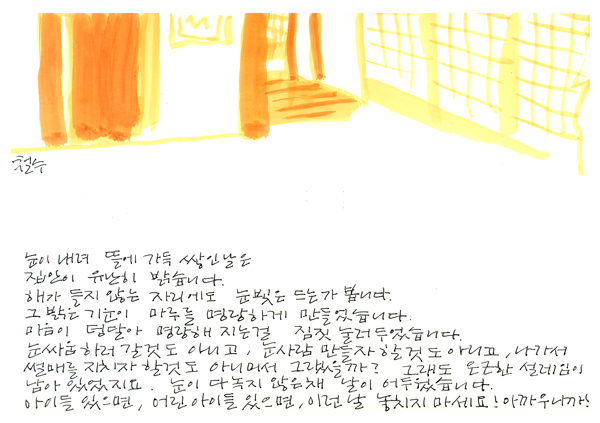 철수
눈이 내려 뜰에 가득 쌓인날은
집안이 유난히 밝습니다.
해가 들지 않는 자리에도 눈빛은 드는가 봅니다.
그 밝은 기운이 마루를 명랑하게 만들었습니다.
마음이 덩달아 명랑해 지는걸 짐짓 눌러 두었습니다.
눈싸움하러 갈것도 아니고, 눈사람 만들자 할것도 아니고, 나가서
썰매를 지치자 할것도 아니면서 그랬을까? 그래도 은근한 설레임이
남아 있었지요. 눈이 다 녹지 않은채 날이 어두웠습니다.
아이들 있으면, 어린 아이들 있으면, 이런 날 놓치지 마세요! 아까우니까!